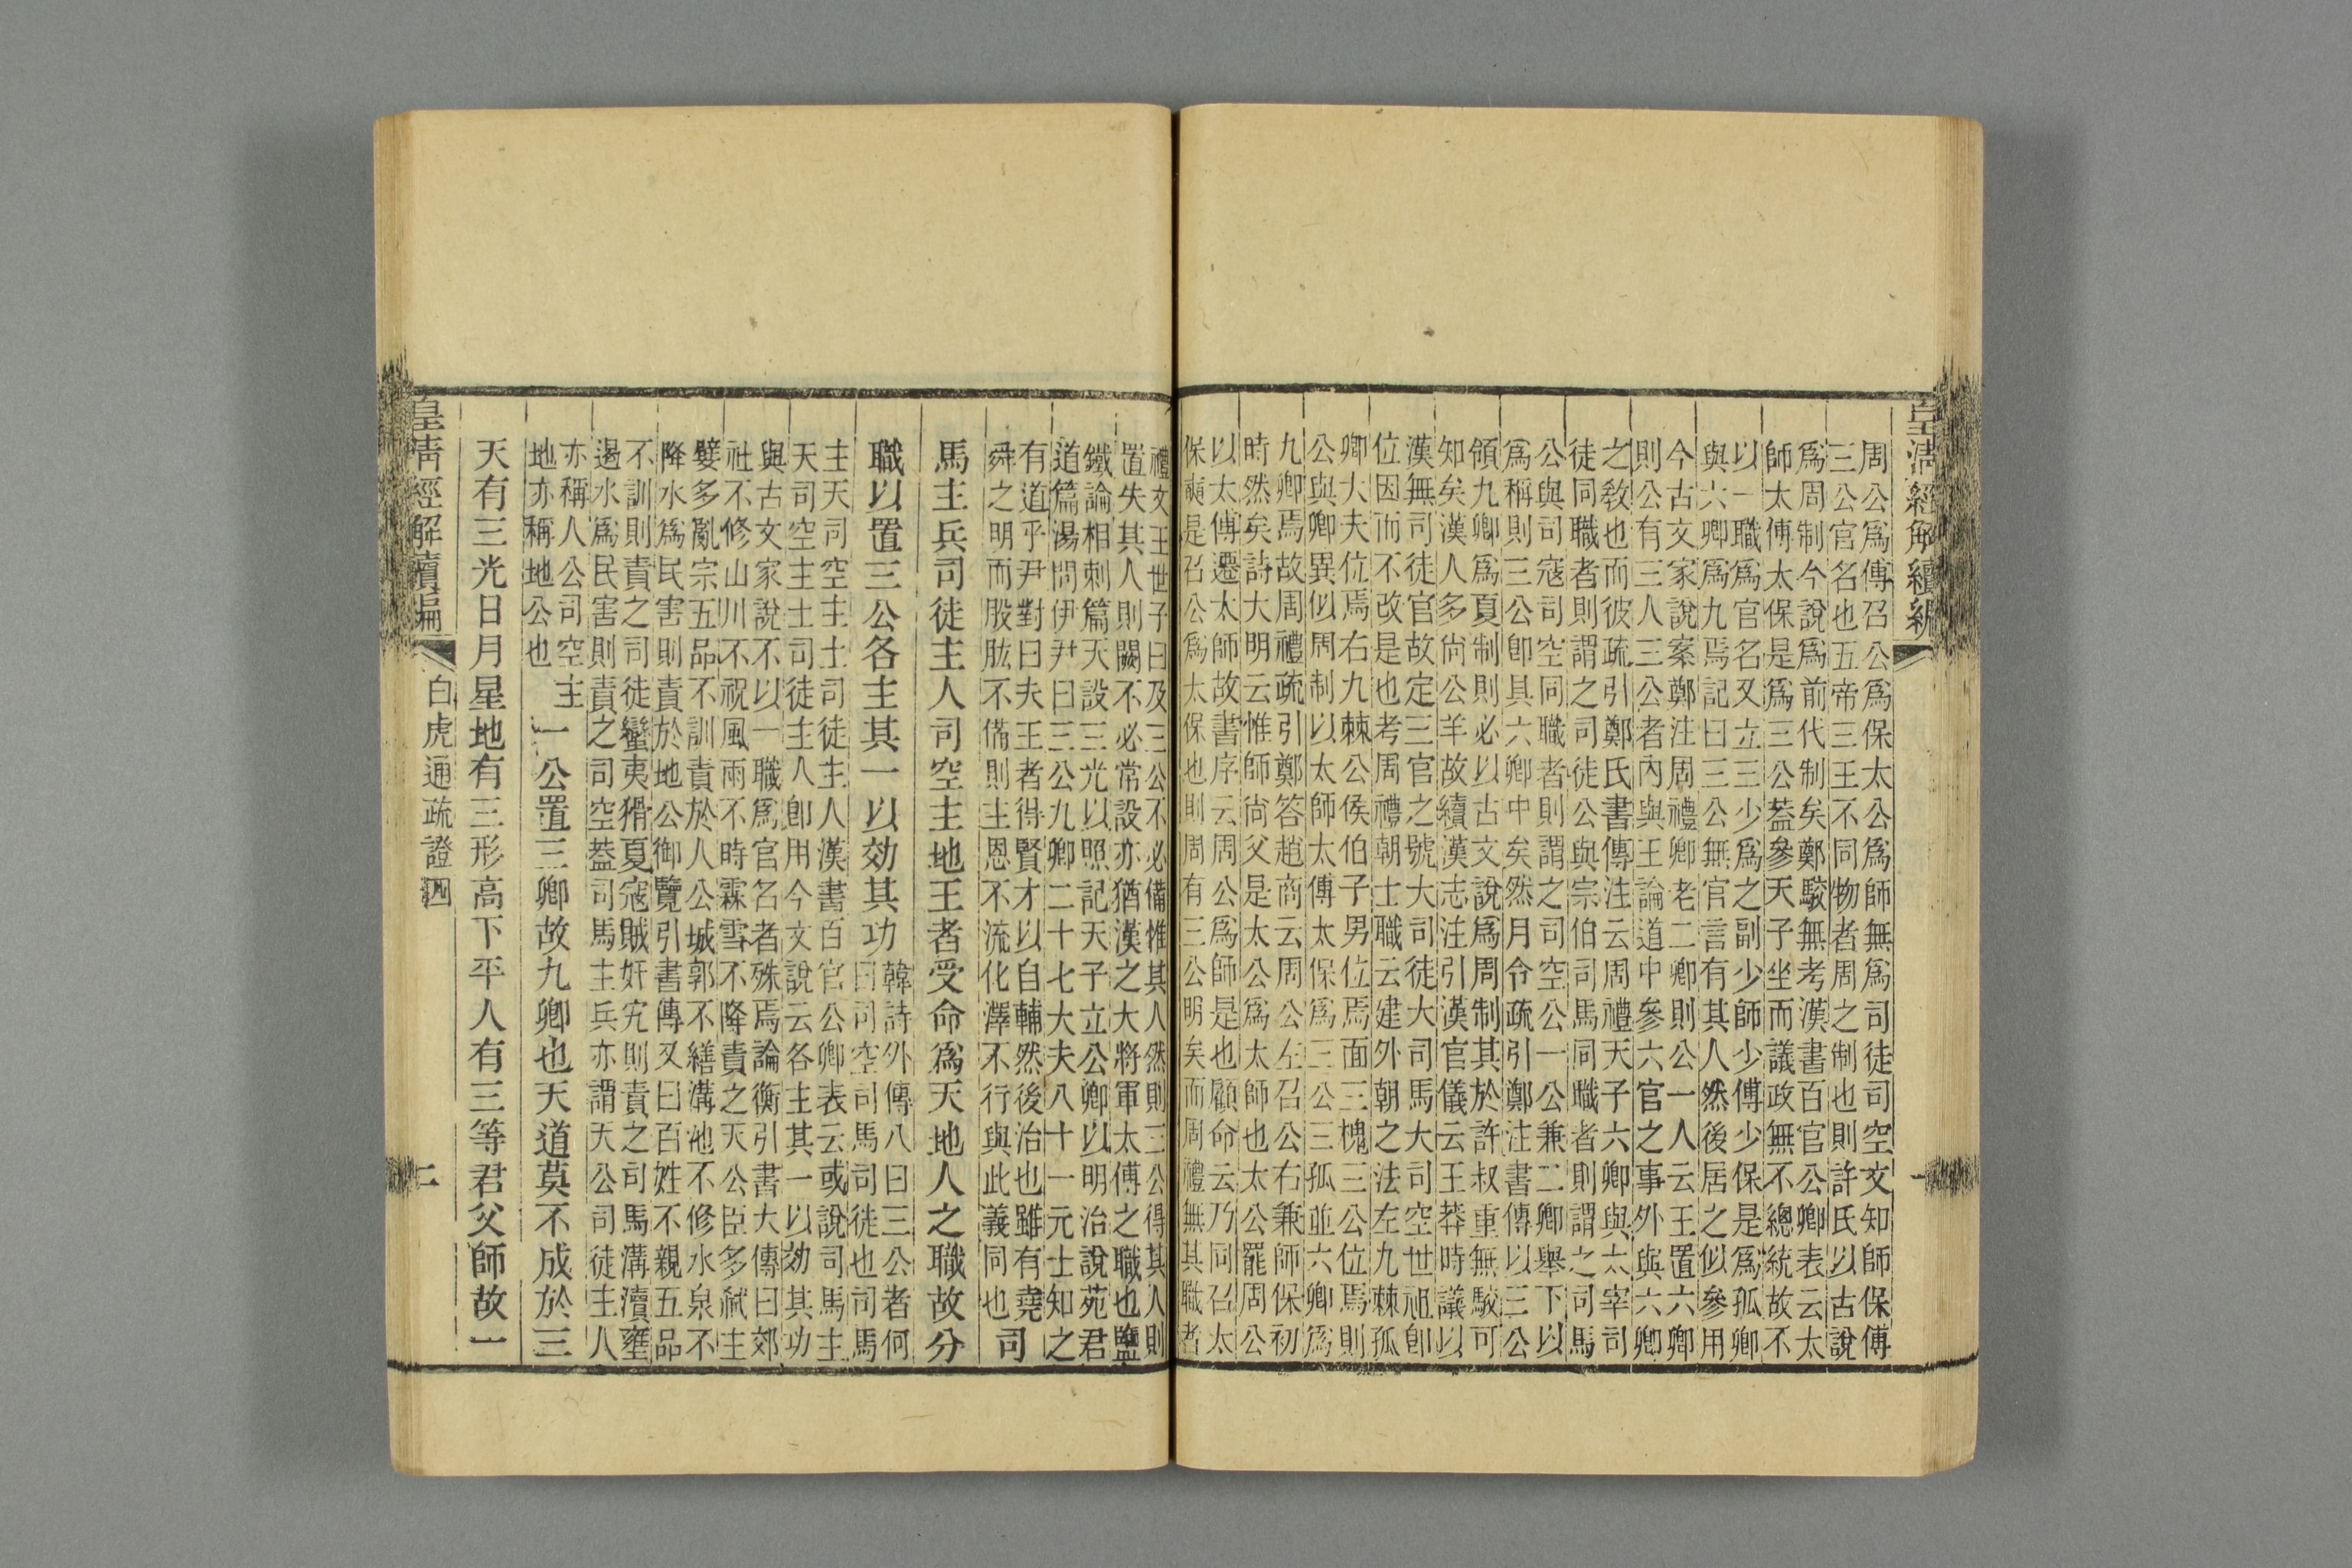 皇清經解續編
一
周公爲傅召公爲保太公爲師無爲司徒司空文知師保傅
三公官名也五帝三王不同物者周之制也則許氏以古說
爲周制今說爲前代制矣鄭駮無考漢書百官公卿表云太
師太傅太保是爲三公蓋參天子坐而議政無不總統故不
以一職爲官名又立三少爲之副少師少傅少保是爲孤卿
與六卿爲九焉記曰三公無官言有其人然後居之似參用
今古文家說案鄭注周禮卿老二卿則公一人云王置六卿
則公有三人三公者內與王論道中參六官之事外與六卿
之敎也而彼疏引鄭氏書傳注云周禮天子六卿與太宰司
徒同職者則謂之司徒公與宗伯司馬同職者則謂之司馬
公與司寇司空同職者則謂之司空公一公兼二卿舉下以
爲稱則三公卽其六卿中矣然月令疏引鄭注書傳以三公
領九卿爲夏制則必以古文說爲周制其於許叔重無駮可
知矣漢人多尙公羊故續漢志注引漢官儀云王莽時議以
漢無司徒官故定三官之號大司徒大司馬大司空世祖卽
位因而不改是也考周禮朝士職云建外朝之法左九棘孤
卿大夫位焉右九棘公侯伯子男位焉面三槐三公位焉則
公與卿異似周制以太師太傅太保爲三公三孤並六卿爲
九卿焉故周禮疏引鄭答趙商云周公左召公右兼師保初
時然矣詩大明云惟師尙父是太公爲太師也太公罷周公
以太傅遷太師故書序云周公爲師是也顧命云乃同召太
保奭是召公爲太保也則周有三公明矣而周禮無其職者
禮文王世子曰及三公不必備惟其人然則三公得其人則
置失其人則闕不必常設亦猶漢之大將軍太傅之職也鹽
鐵論相刺篇天設三光以照記天子立公卿以明治說苑君
道篇湯問伊尹曰三公九卿二十七大夫八十一元士知之
有道乎尹對曰夫王者得賢才以自輔然後治也雖有堯
舜之明而股肱不備則主恩不流化澤不行與此義同也 司
馬主兵司徒主人司空主地王者受命爲天地人之職故分
職以置三公各主其一以効其功
韓詩外傳八曰三公者何
曰司空司馬司徒也司馬
主天司空主土司徒主人漢書百官公卿表云或說司馬主
天司空主土司徒主人卽用今文說云各主其一以効其功
與古文家說不以一職爲官名者殊焉論衡引書大傳曰郊
社不修山川不祝風雨不時霖雪不降責之天公臣多弑主
孼多亂宗五品不訓責於人公城郭不繕溝池不修水泉不
降水爲民害則責於地公御覽引書傳又曰百姓不親五品
不訓則責之司徒蠻夷猾夏寇賊奸宄則責之司馬溝瀆壅
遏水爲民害則責之司空蓋司馬主兵亦謂天公司徒主人
亦稱人公司空主
地亦稱地公也
一公置三卿故九卿也天道莫不成於三
天有三光日月星地有三形高下平人有三等君父師故一
皇淸經解續編
白虎通疏證四
二